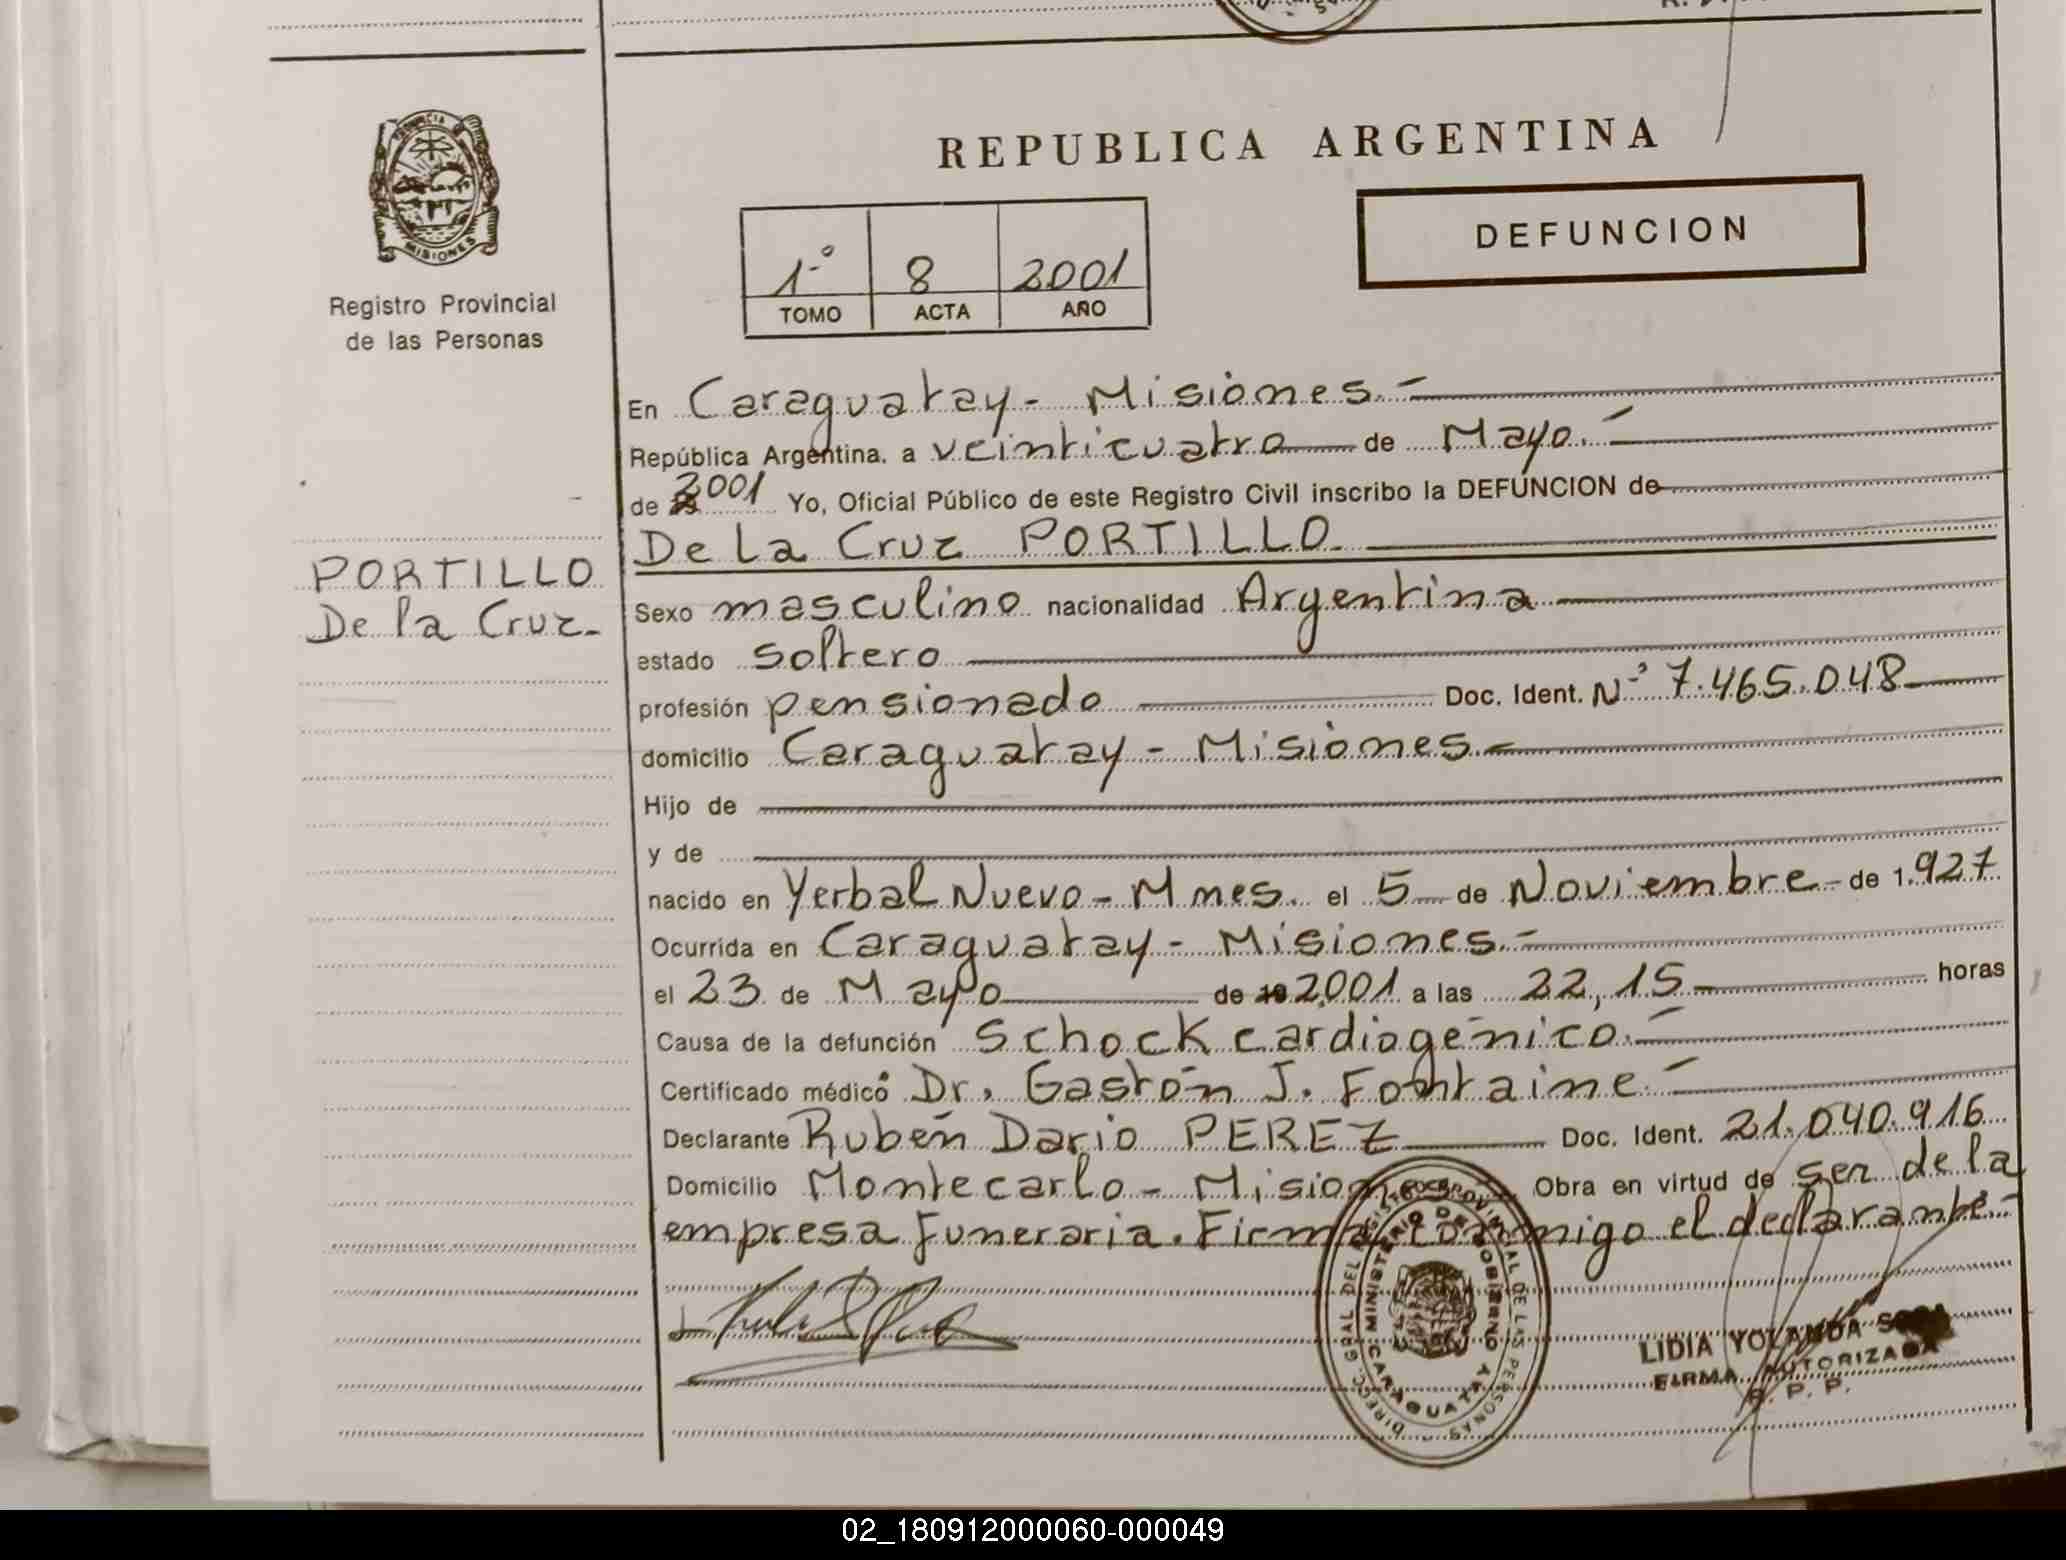 REPUBLICA ARGENTINA
PROVINCIA
MISIONES
Registro Provincial
de las Personas
1º 8 2001
TOMO ACTA AÑO
DEFUNCION
En Caraguatay - Misiones.-
República Argentina, a veinticuatro de Mayo.-
de 2001 Yo, Oficial Público de este Registro Civil inscribo la DEFUNCION de
De La Cruz PORTILLO.
PORTILLO
De la Cruz.-
Sexo masculino nacionalidad Argentina
estado soltero
profesión pensionado Doc. Ident. Nº 7.465.048
domicilio Caraguatay - Misiones.-
Hijo de
y de
nacido en Yerbal Nuevo - Mnes. el 5 de Noviembre - de 1.927
Ocurrida en Caraguatay - Misiones.-
el 23 de Mayo de 19 2.001 a las 22,15 horas
Causa de la defunción Schock cardiogénico.-
Certificado médico Dr. Gastón J. Fontaine.-
Declarante Rubén Dario PEREZ Doc. Ident. 21.040.916
Domicilio Montecarlo - Misiones Obra en virtud de ser de la
empresa Funeraria. Firma conmigo el declarante.-
DIRECC. GRAL DEL REGISTRO PROVINCIAL DE LAS PERSONAS
MINISTERIO DE GOBIERNO
CARAGUATAY
LIDIA YOLANDA
FIRMA AUTORIZADA
R. P. P.
02_180912000060-000049